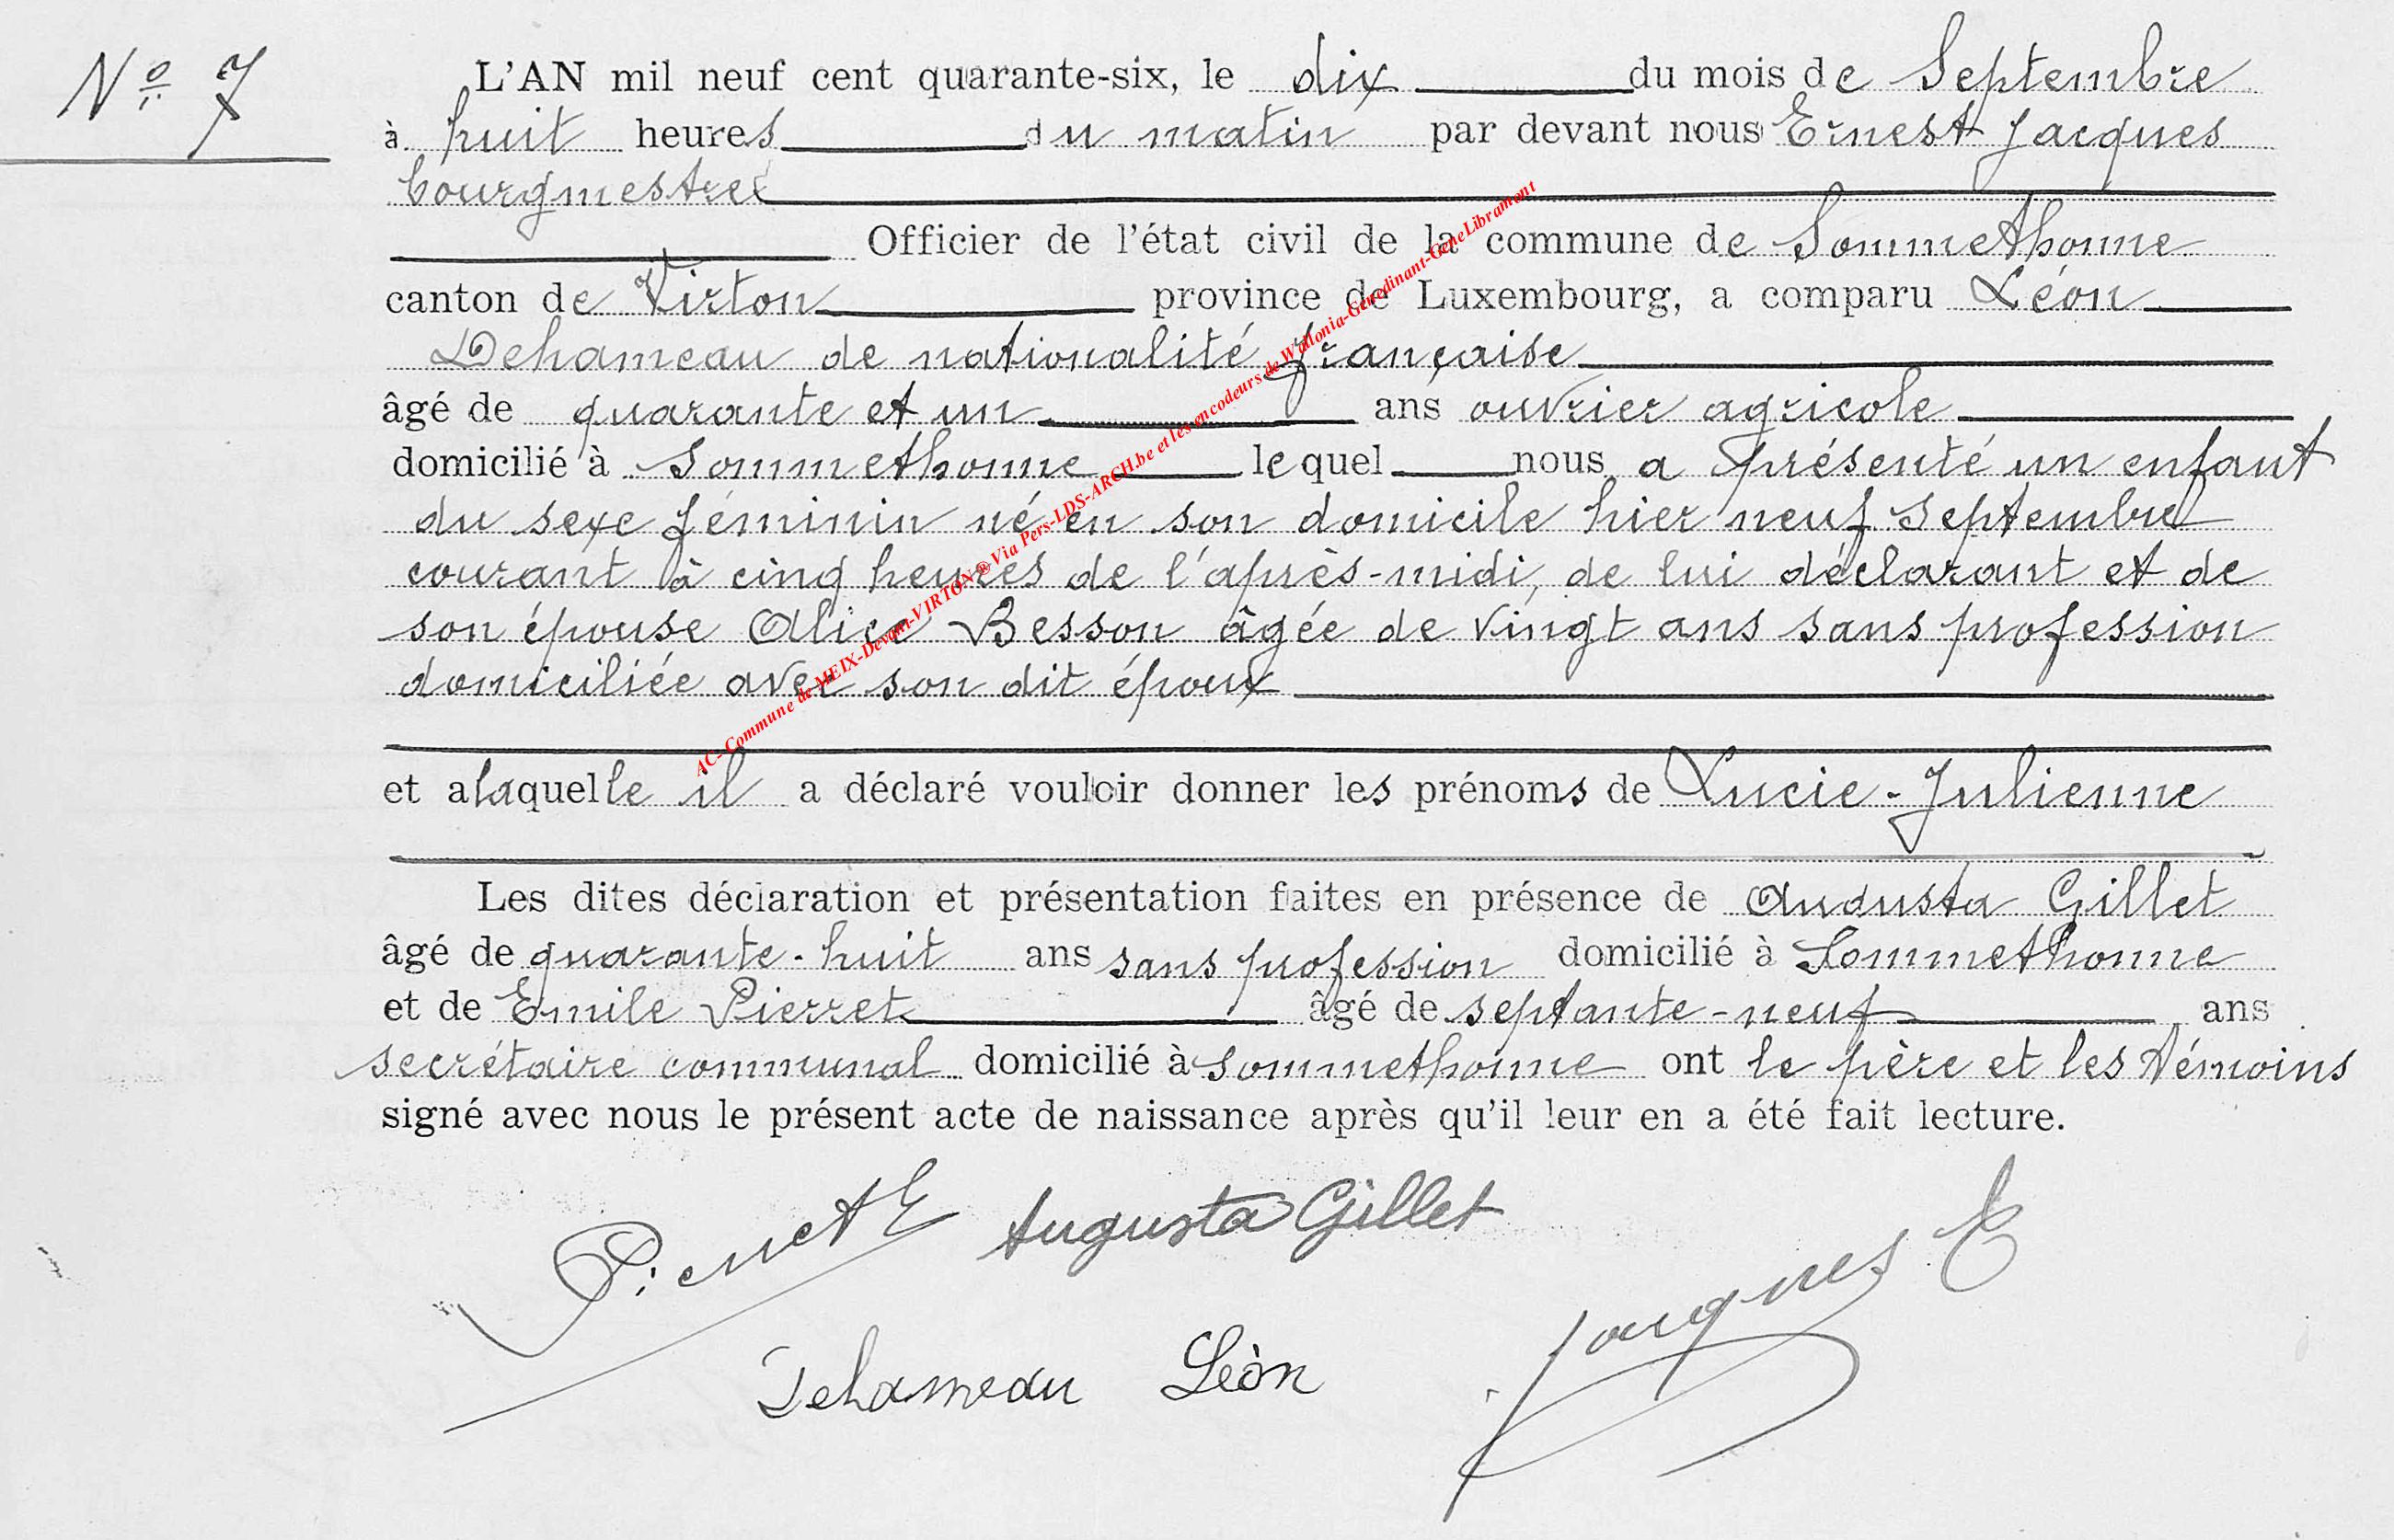 N° 7
L'AN mil neuf cent quarante-six, le dix du mois de Septembre
à huit heures du matin par devant nous Ernest Jacques
bourgmestre
Officier de l'état civil de la commune de Sommethonne
canton de Virton province de Luxembourg, a comparu Léon
Dehameau de nationalité française
âgé de quarante et un ans ouvrier agricole
domicilié à Sommethonne lequel nous a présenté un enfant
du sexe féminin né en son domicile hier neuf septembre
courant à cinq heures de l'après-midi, de lui déclarant et de
son épouse Alice Besson âgée de vingt ans sans profession
domiciliée avec son dit époux
et alaquelle il a déclaré vouloir donner les prénoms de Lucie-Julienne
Les dites déclaration et présentation faites en présence de Augusta Gillet
âgé de quarante-huit ans sans profession domicilié à Sommethonne
et de Emile Pierret âgé de septante-neuf ans
secrétaire communal domicilié à Sommethonne ont le père et les témoins
signé avec nous le présent acte de naissance après qu'il leur en a été fait lecture.
Pierret E Augusta Gillet
Jacques E
Dehameau Léon
AC- Commune de MEIX-Devant-VIRTON ® Via Pers-LDS-ARCH.be et les encodeurs de Wallonia-Genedinant-GeneLibramont